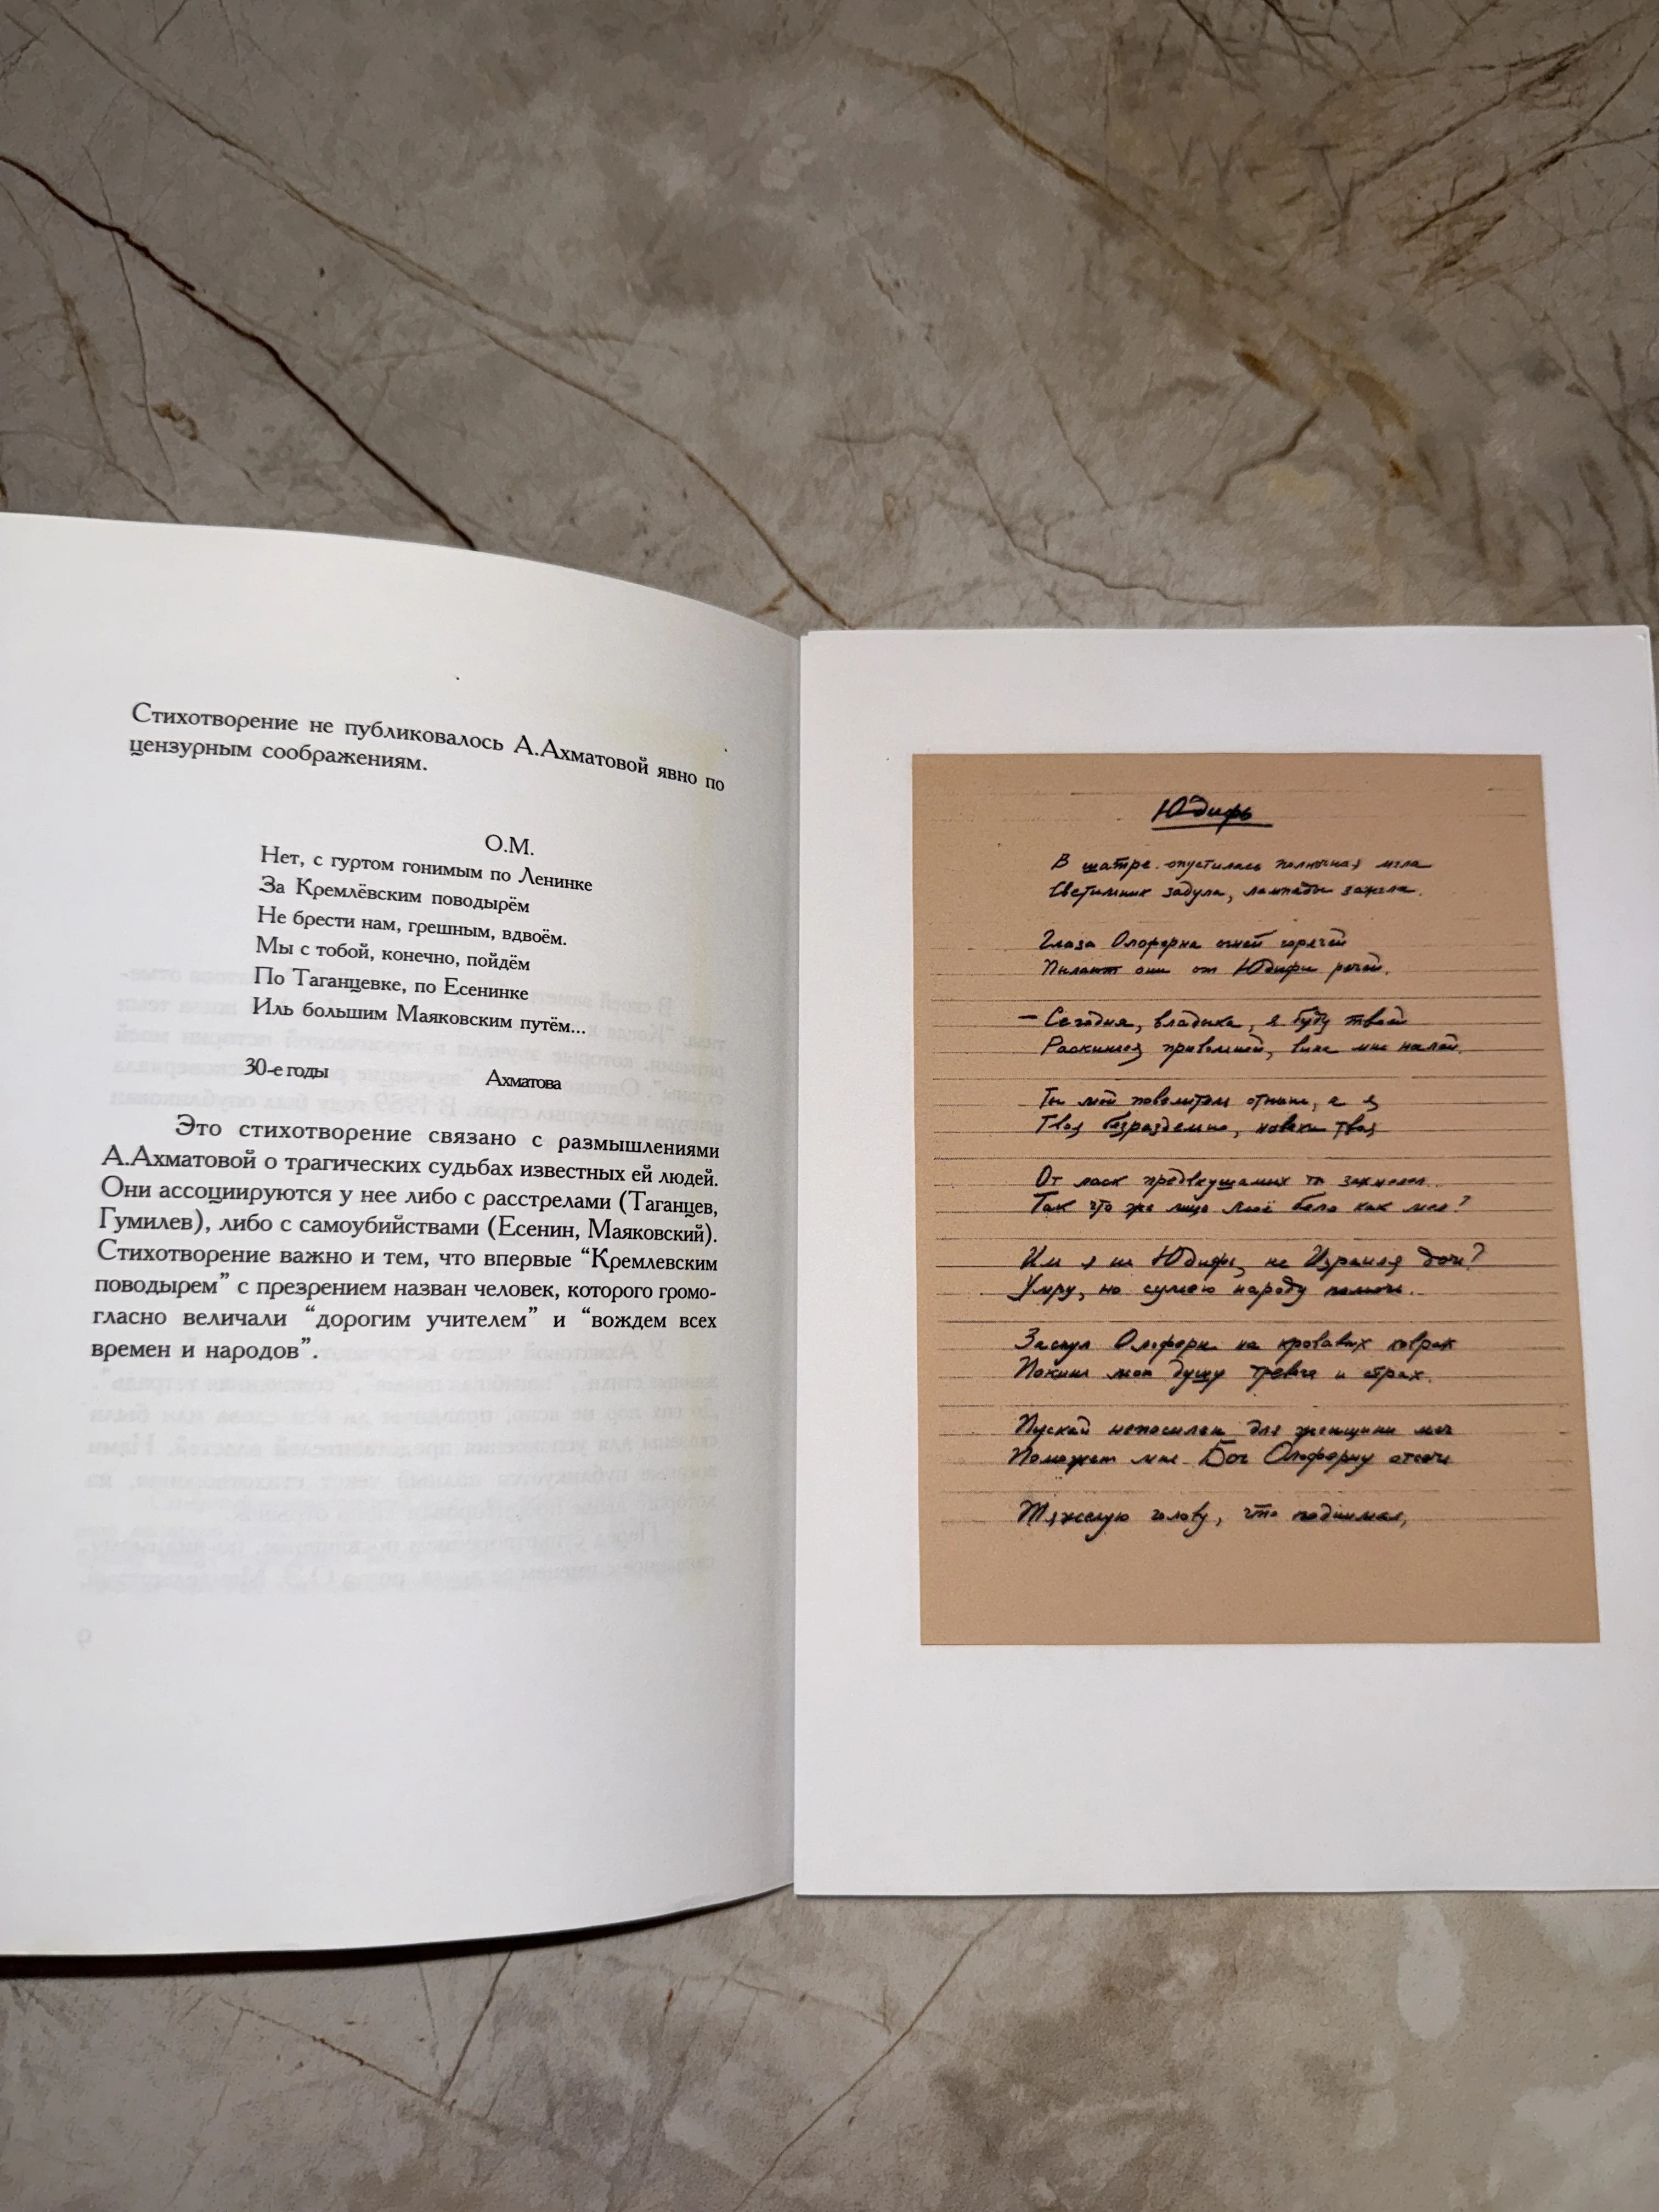 Стихотворение не публиковалось А.Ахматовой явно по
цензурным соображениям.
О.М.
Нет, с гуртом гонимым по Ленинке
За Кремлёвским поводырём
Не брести нам, грешным, вдвоём.
Мы с тобой, конечно, пойдём
По Таганцевке, по Есенинке
Иль большим Маяковским путём...
30-е годы Ахматова
Это стихотворение связано с размышлениями
А.Ахматовой о трагических судьбах известных ей людей.
Они ассоциируются у нее либо с расстрелами (Таганцев,
Гумилев), либо с самоубийствами (Есенин, Маяковский).
Стихотворение важно и тем, что впервые “Кремлевским
поводырем” с презрением назван человек, которого громо-
гласно величали “дорогим учителем” и “вождем всех
времен и народов”.
Юдифь
В шатре опустилась полночная мгла
Светильник задула, лампады зажгла.
Глаза Олоферна огней горячей
Пылают они от Юдифи речей.
— Сегодня, владыка, я буду твоей
Раскинься привольней, вина мне налей.
Ты мой повелитель отныне, а я
Твоя безраздельно, навеки твоя
От ласк предвкушаемых ты захмелел..
Так что же лицо твоё бело как мел?
Иль я не Юдифь, не Израиля дочь?
Умру, но сумею народу помочь.
Заснул Олоферн на кровавых коврах
Покинь мою душу тревога и страх.
Пускай непосилен для женщины меч
Поможет мне Бог Олоферну отсечь
Тяжелую голову, что поднимал,